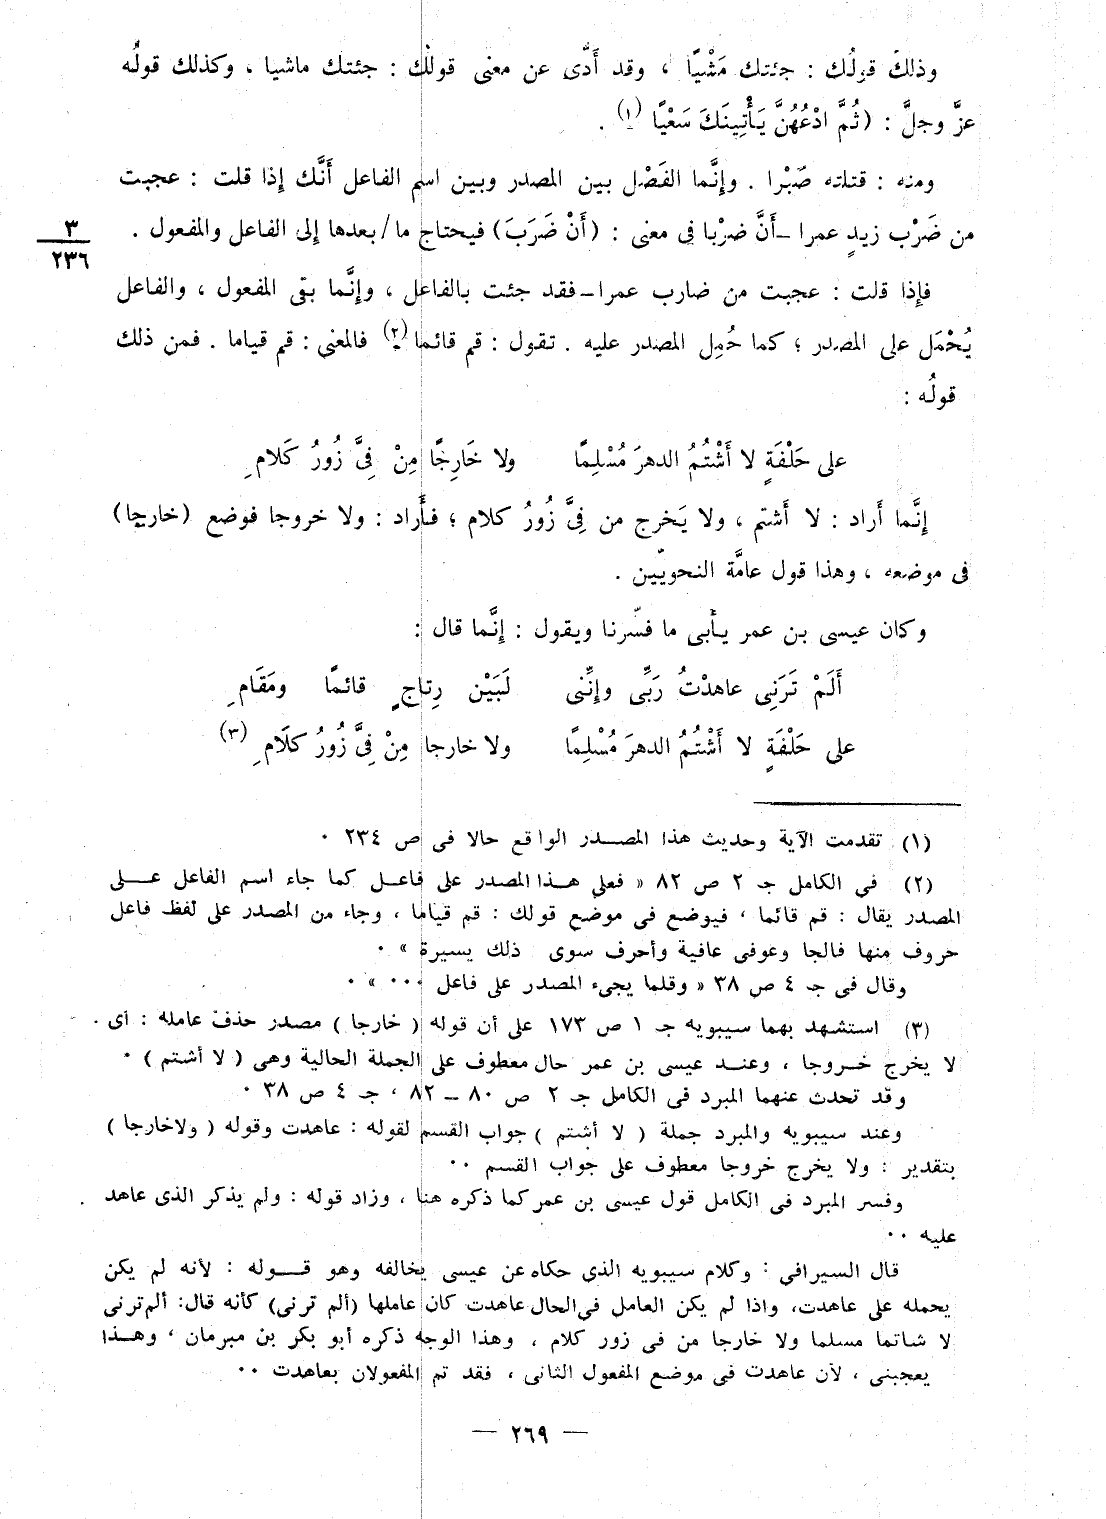 وذلك قولُك : جئتك مَشْيًا ، وقد أَدَّى عن معنى قولك : جئتك ماشيا ، وكذلك قولُه
عزَّ وجلَّ : (ثُمَّ ادْعُهُنَّ يَأْتِينَكَ سَعْيًا (١) .
ومنه : قتلته صَبْرا . وإنَّما الفَصْل بين المصدر وبين اسم الفاعل أَنَّك إِذا قلت : عجبت
من ضَرْب زيدٍ عمرا – أَنَّ ضرْبا فى معنى : (أَنْ ضَرَبَ) فيحتاج ما/ بعدها إلى الفاعل والمفعول .
٣
٢٣٦
فإِذا قلت : عجبت من ضارب عمرا – فقد جئت بالفاعل ، وإنَّما بقى المفعول ، والفاعل
يُحْمَل على المصدر ؛ كما حُمِل المصدر عليه . تقول : قم قائما (٢) فالمعنى : قم قياما . فمن ذلك
قولُه :
على حَلْفَةٍ لا أَشْتُمُ الدهرَ مُسْلِمًا ولا خَارِجًا مِنْ فِىَّ زُورُ كَلامِ
إِنَّما أَراد : لا أَشتم ، ولا يَخرج من فِىَّ زُورُ كلام ؛ فأَراد : ولا خروجا فوضع (خارجا)
فى موضعه ، وهذا قول عامَّة النحويّين .
وكان عيسى بن عمر يأْبى ما فسّرنا ويقول : إِنَّما قال :
أَلَمْ تَرَنِى عاهدْتُ رَبِّى وإِنَّنِى لَبَيْن رِتاجٍ قائمًا ومَقَامِ
على حَلْفَةٍ لا أَشْتُمُ الدهرَ مُسْلِمًا ولا خارجا مِنْ فِىَّ زُورُ كلَامِ (٣)
(١) تقدمت الآية وحديث هذا المصدر الواقع حالا فى ص ٢٣٤ ٠
(٢) فى الكامل جـ ٢ ص ٨٢ « فعلى هذا المصدر على فاعل كما جاء اسم الفاعل على
المصدر يقال : قم قائما ، فيوضع فى موضع قولك : قم قياما ، وجاء من المصدر على لفظ فاعل
حروف منها فالجا وعوفى عافية وأحرف سوى ذلك يسيرة » ٠
وقال فى جـ ٤ ص ٣٨ « وقلما يجىء المصدر على فاعل ٠٠٠ » ٠
(٣) استشهد بهما سيبويه جـ ١ ص ١٧٣ على أن قوله ( خارجا ) مصدر حذف عامله : أى
لا يخرج خروجا ، وعند عيسى بن عمر حال معطوف على الجملة الحالية وهى ( لا أشتم ) ٠
وقد تحدث عنهما المبرد فى الكامل جـ ٢ ص ٨٠ – ٨٢ ، جـ ٤ ص ٣٨ ٠
وعند سيبويه والمبرد جملة ( لا أشتم ) جواب القسم لقوله : عاهدت وقوله ( ولاخارجا )
بتقدير : ولا يخرج خروجا معطوف على جواب القسم ٠٠
وفسر المبرد فى الكامل قول عيسى بن عمر كما ذكره هنا ، وزاد قوله : ولم يذكر الذى عاهد
عليه ٠٠
قال السيرافي : وكلام سيبويه الذى حكاه عن عيسى يخالفه وهو قوله : لأنه لم يكن
يحمله على عاهدت، واذا لم يكن العامل فى الحال عاهدت كان عاملها (ألم ترنى) كأنه قال: ألم ترنى
لا شاتما مسلما ولا خارجا من فى زور كلام ، وهذا الوجه ذكره أبو بكر بن مبرمان ، وهذا
يعجبنى ، لأن عاهدت فى موضع المفعول الثانى ، فقد تم المفعولان بعاهدت ٠٠
— ٢٦٩ —